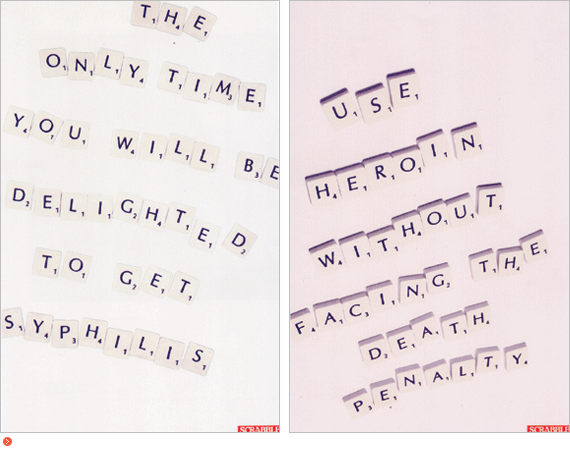 THE
ONLY TIME
YOU WILL BE
DELIGHTED
TO GET
SYPHILIS
SCRABBLE
USE
HEROIN
WITHOUT
FACING THE
DEATH
PENALTY
SCRABBLE